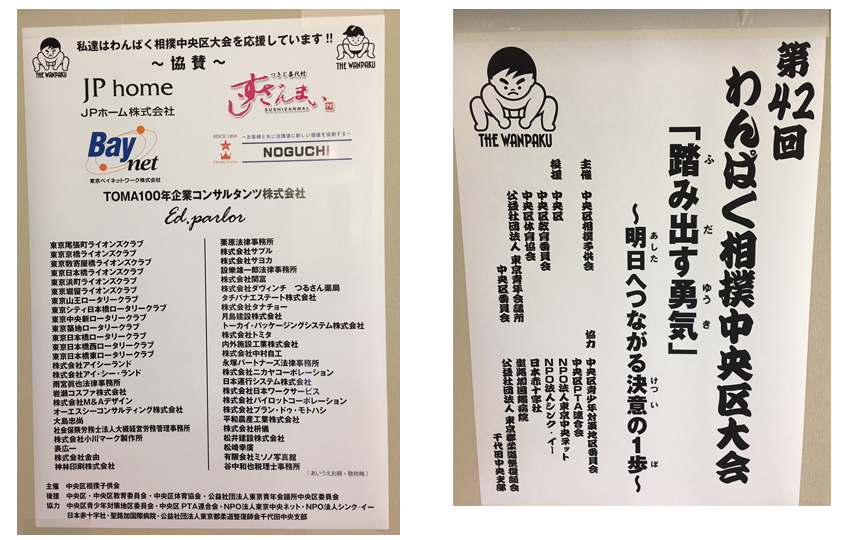 私達はわんぱく相撲中央区大会を応援しています!!
～協賛～
THE WANPAKU
THE WANPAKU
JP home
JPホーム株式会社
つきじ喜代村
すしざんまい
SUSHIZANMAI
Bay net
東京ベイネットワーク株式会社
SINCE 1956
～お客様と共に住環境に新しい価値を協創する～
NOGUCHI
TOMA100年企業コンサルタンツ株式会社
Ed.parlor
東京尾張町ライオンズクラブ
東京京橋ライオンズクラブ
東京数寄屋橋ライオンズクラブ
東京日本橋ライオンズクラブ
東京浜町ライオンズクラブ
東京堀留ライオンズクラブ
東京山王ロータリークラブ
東京シティ日本橋ロータリークラブ
東京中央新ロータリークラブ
東京築地ロータリークラブ
東京日本橋ロータリークラブ
東京日本橋西ロータリークラブ
東京日本橋東ロータリークラブ
株式会社アイシーランド
株式会社アイ・シー・ランド
雨宮眞法律事務所
岩瀬コスファ株式会社
株式会社M&Aデザイン
オーエスシーコンサルティング株式会社
大島忠尚
社会保険労務士法人大槻経営労務管理事務所
株式会社小川マーク製作所
表広一
株式会社金由
神林印刷株式会社
栗原法律事務所
株式会社サブル
株式会社サヨカ
設樂雄一郎法律事務所
株式会社関富
株式会社ダヴィンチ つるさん薬局
タチバナエステート株式会社
株式会社タナチョー
月島建設株式会社
トーカイ・パッケージングシステム株式会社
株式会社トミタ
内外施設工業株式会社
株式会社中村自工
永塚パートナーズ法律事務所
株式会社ニカヤコーポレーション
日本運行システム株式会社
株式会社日本ワークサービス
株式会社パイロットコーポレーション
株式会社プラン・ドゥ・モトハシ
平和農産工業株式会社
株式会社枡儀
松井建設株式会社
松崎幸廣
有限会社ミソノ写真館
谷中和也税理士事務所
(あいうえお順・敬称略)
主催 中央区相撲子供会
後援 中央区・中央区教育委員会・中央区体育協会・公益社団法人東京青年会議所中央区委員会
協力 中央区青少年対策地区委員会・中央区PTA連合会・NPO法人東京中央ネット・NPO法人シンク・イー
日本赤十字社・聖路加国際病院・公益社団法人東京都柔道整復師会千代田中央支部
THE WANPAKU
第42回
わんぱく相撲中央区大会
「踏み出す勇気」
ふ だ ゆうき
～明日へつながる決意の1歩～
あした けつい ぽ
主催 中央区相撲子供会
後援 中央区
中央区教育委員会
中央区体育協会
公益社団法人 東京青年会議所
中央区委員会
協力 中央区青少年対策地区委員会
中央区PTA連合会
NPO法人東京中央ネット
NPO法人シンク・イー
日本赤十字社
聖路加国際病院
公益社団法人 東京都柔道整復師会
千代田中央支部